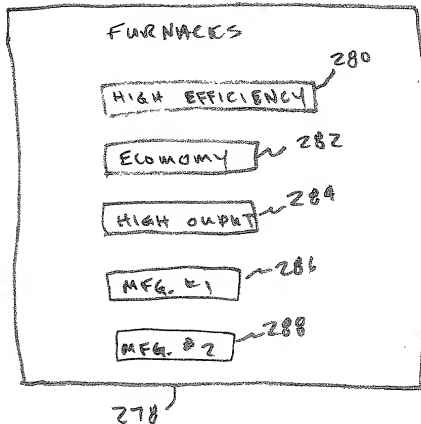 FURNACES
280
HIGH EFFICIENCY
282
ECOMOMY
284
HIGH OUPUT
286
MFG. #1
288
MFG. #2
278